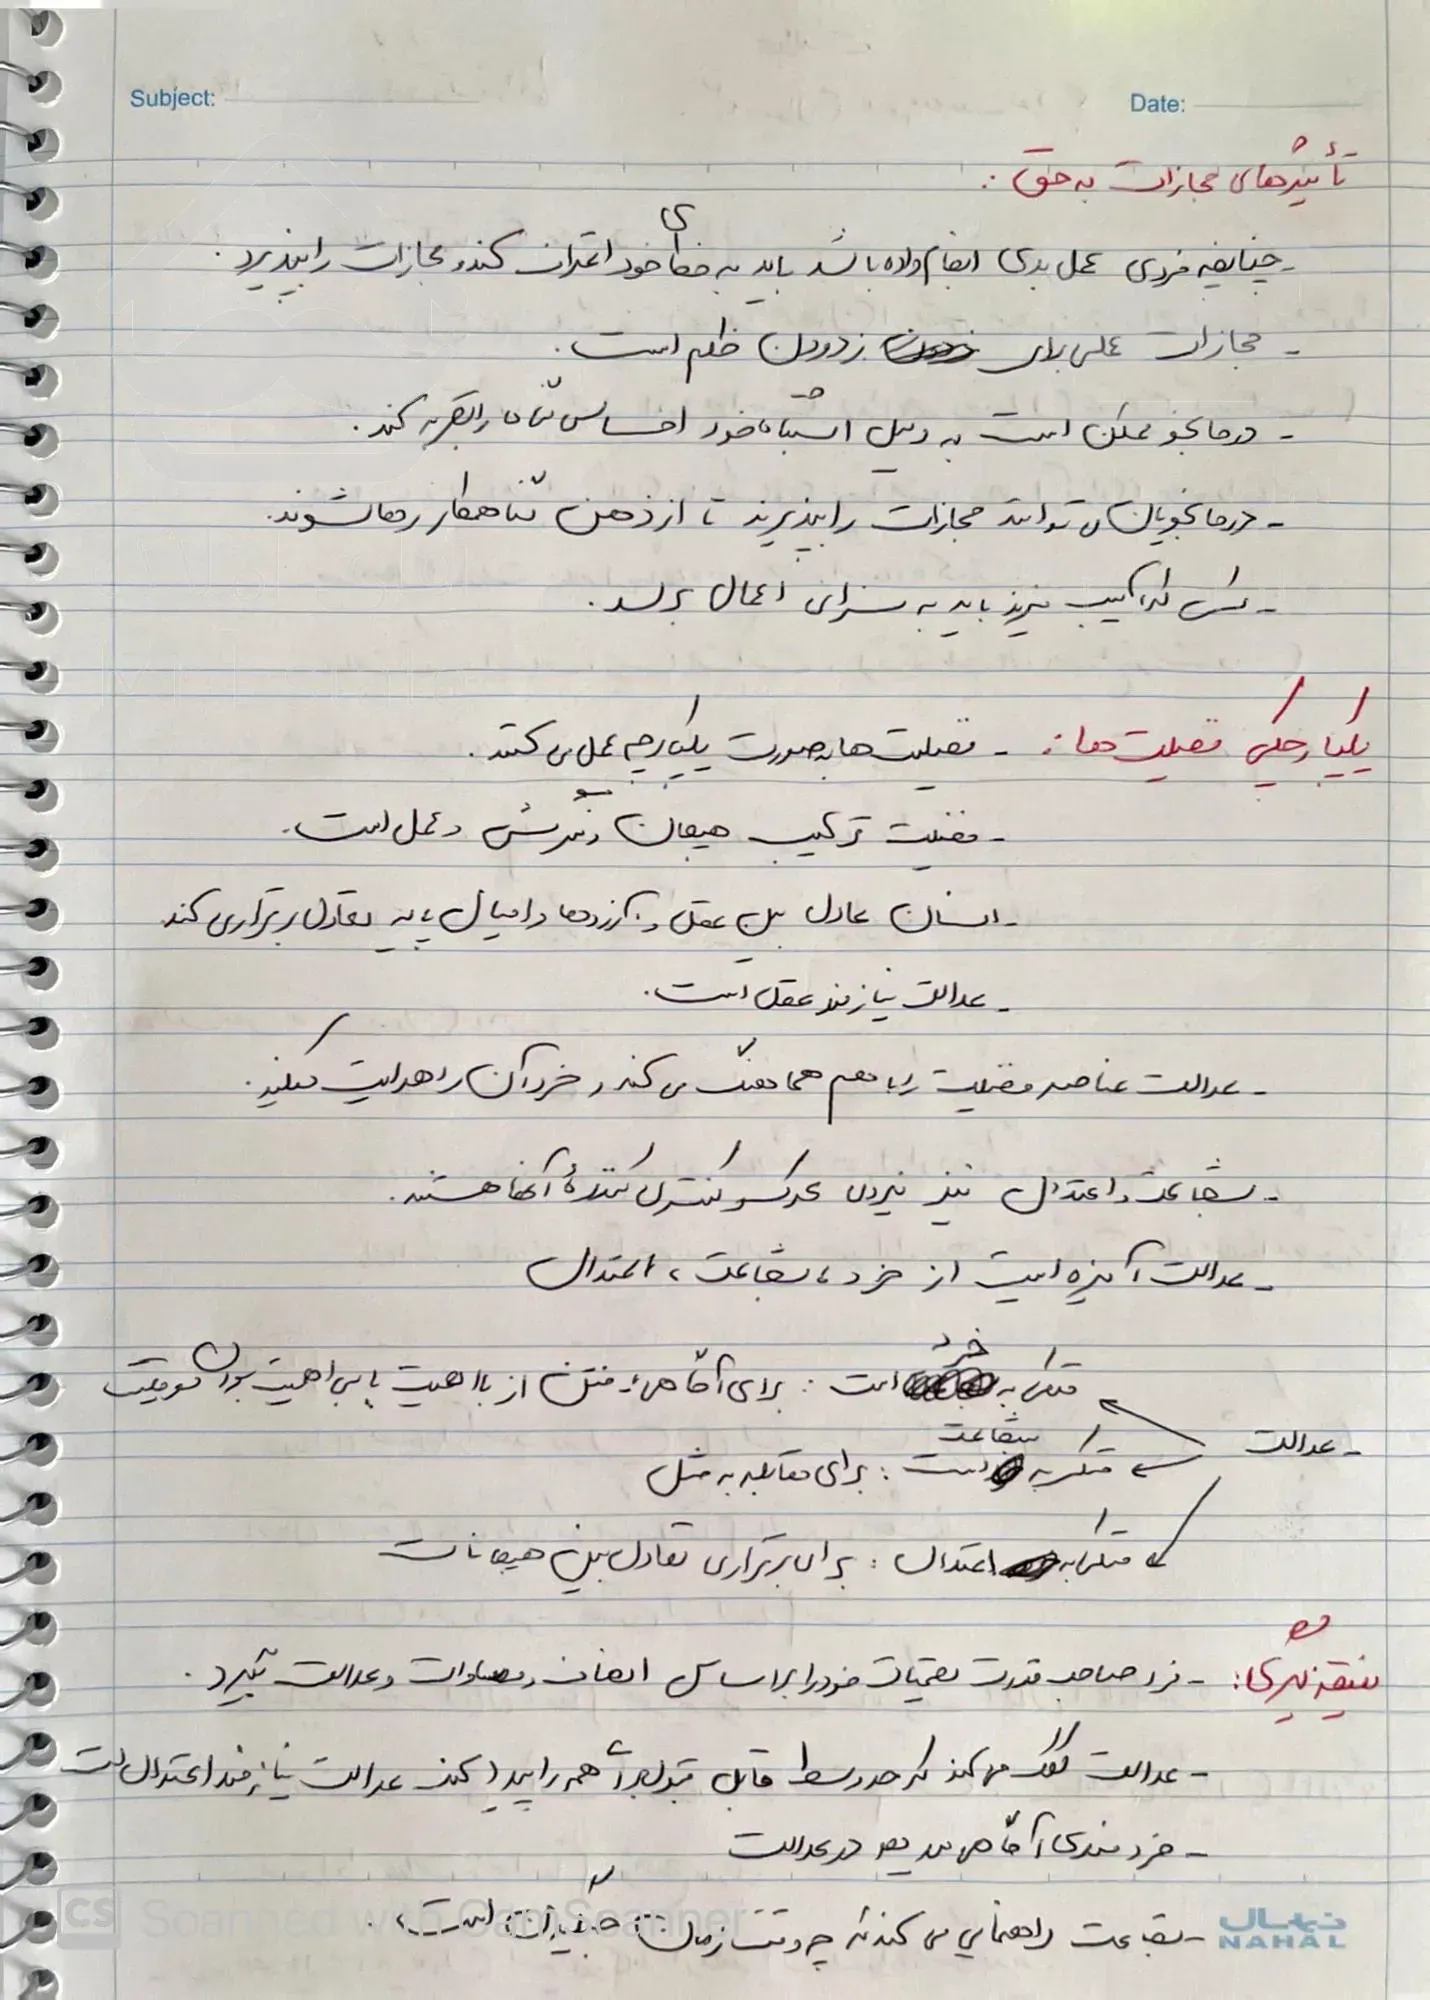 Subject: Date:
تأثیرهای مجازات به حق:
- چنانچه فردی عمل بدی انجام داده باشد باید به خطای خود اعتراف کند و مجازات را بپذیرد.
- مجازات عملی برای زدودن ظلم است.
- درمانجو ممکن است به دلیل اشتباه خود احساس گناه را تجربه کند.
- درمانجویان می توانند مجازات را بپذیرند تا از ذهن گناهکار رها شوند.
- کسی که آسیب میزند باید به سزای اعمال برسد.
یکپارچگی فضیلت ها: - فضیلت ها به صورت یکپارچه عمل می کنند.
- فضیلت ترکیب هیجان و نگرش و عمل است.
- انسان عادل بین عقل و آرزوها و امیال باید تعادل برقراری کند
- عدالت نیازمند عقل است.
- عدالت عناصر فضیلت را با هم هماهنگ می کند و خرد آن را هدایت میکند.
- شجاعت و اعتدال نیز نیروی محرک و کنترل کنندهٔ آنها هستند.
- عدالت آمیزه است از خرد، شجاعت، اعتدال
متکی به خرد است: برای آگاهی از بااهمیت یا بی اهمیت بودن موقعیت
- عدالت
متکی به شجاعت است: برای مقابله به مثل
متکی به اعتدال: برای برقراری تعادل بین هیجانات
نتیجه گیری: - فرد صاحب قدرت تصمیمات خود را بر اساس انصاف و مساوات و عدالت بگیرد.
- عدالت کمک می کند که حد وسط قابل قبول برای همه را پیدا کند عدالت نیازمند اعتدال است
- خردمندی آگاهی می دهد در عدالت
- شجاعت راهنمایی می کند که چه وقت زمان است.
NAHAL نهال
CS Scanned with CamScanner